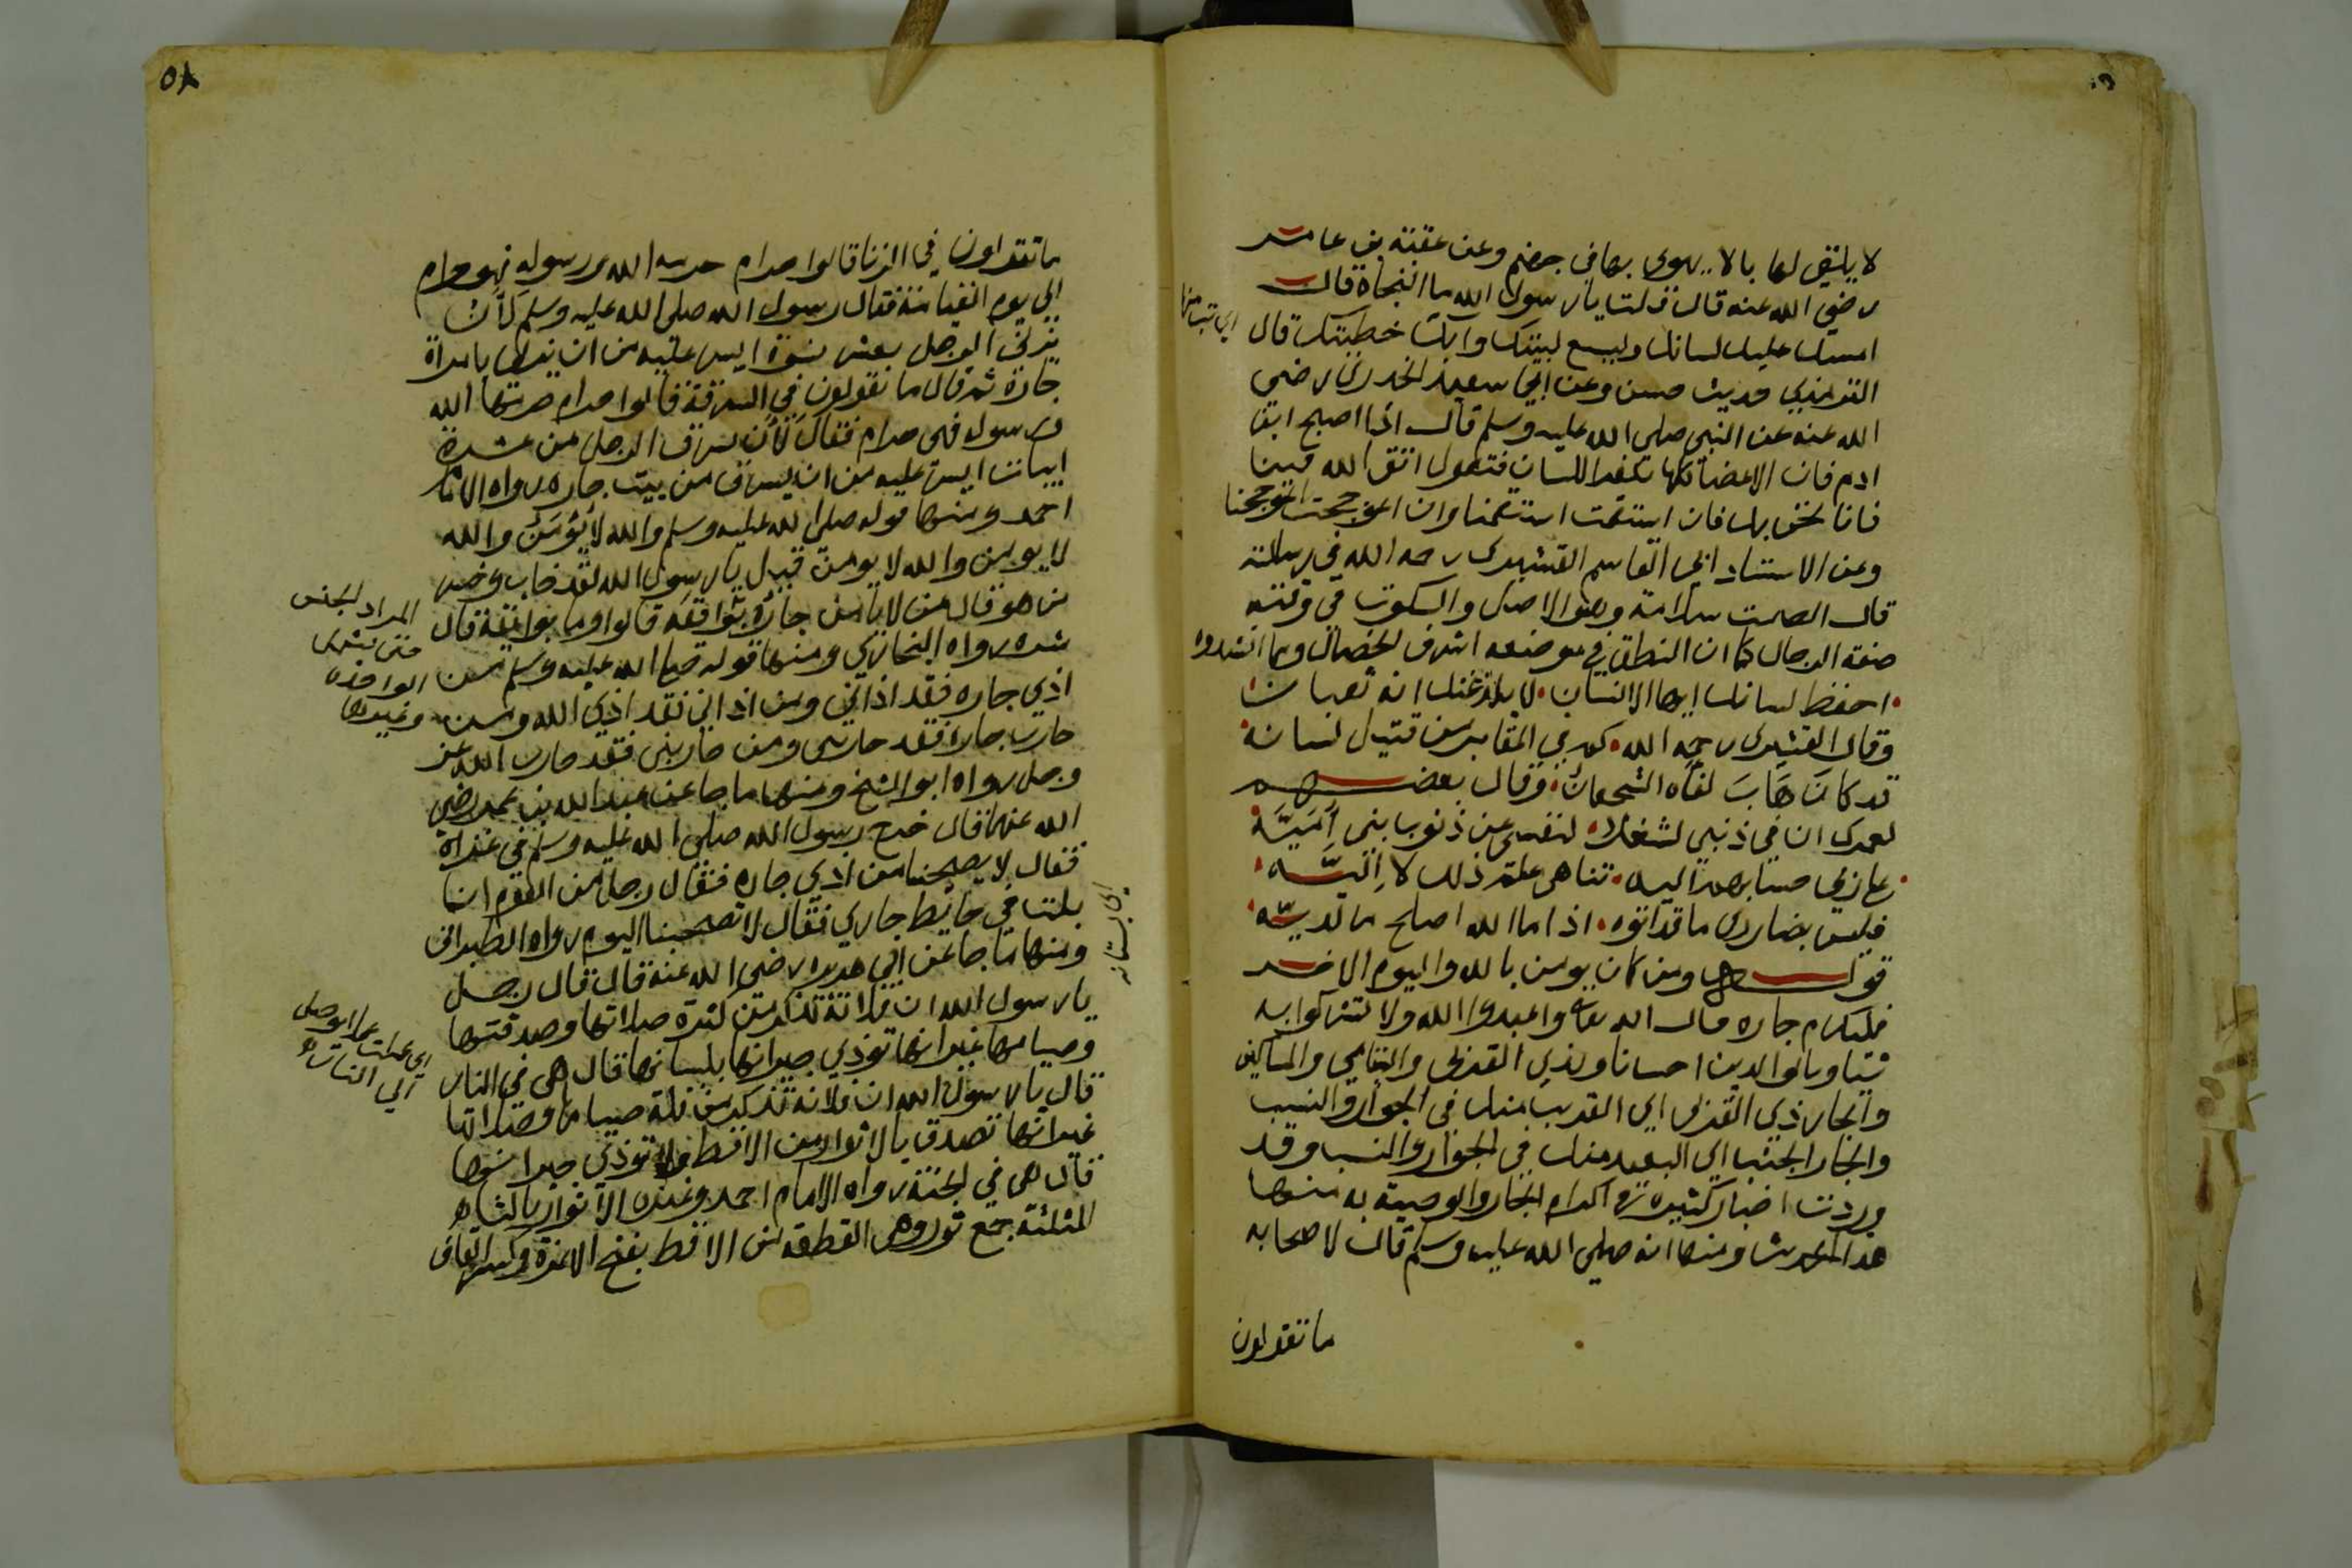 لا يلتقي لها بالا يهوى بها في جهنم وعن عقبة بن عامر
رضي الله عنه قال قلت يا رسول الله ما النجاة قال
امسك عليك لسانك وليسع لبيتك وابك خطيتك قال
الترمذي حديث حسن وعن ابي سعيد الخدري رضي
الله عنه عن النبي صلى الله عليه وسلم قال اذا اصبح ابن
ادم فان الاعضا كلها تكفر اللسان فتقول اتق الله فينا
فانا نحن بك فان استقمت استقمنا وان اعوججت اعوججنا
وعن الاستاد ابي القاسم القشيري رحمه الله في رسالته
قال الصمت سلامة وهو الاصل والسكوت في وقته
صفة الرجال كما ان النطق في موضعه اشرف الخصال ومما انشدوا
احفظ لسانك ايها الانسان لا يلدغنك انه ثعبان
وقال القشيري رحمه الله كم في المقابر من قتيل لسانه
قد كان هاب لقاه الشجعان وقال بعضهم
لعمرك ان في ذنبي لشغلا لنفسي عن ذنوب بني اميّة
على ربي حسابهم اليه تناهى علم ذلك لا اليّه
فليس بضاري ما قد اتوه اذا ما الله اصلح ما لديّه
قوله ومن كان يومن بالله واليوم الاخر
فليكرم جاره قال الله تعالى واعبدوا الله ولا تشركوا به
شيا وبالوالدين احسانا وبذي القربى واليتامى والمساكين
والجار ذي القربى اي القريب منك في الجوار والنسب
والجار الجنب اي البعيد منك في الجوار والنسب وقد
وردت اخبار كثيرة في اكرام الجار والوصية به منها
هذا الحديث ومنها انه صلى الله عليه وسلم قال لاصحابه
ما تقولون
٥٨
ما تقولون في الزنا قالوا حرام حرمه الله ورسوله فهو حرام
الى يوم القيامة فقال رسول الله صلى الله عليه وسلم لأن
يزني الرجل بعشر نسوة ايسر عليه من ان يزني بامراة
جاره ثم قال ما تقولون في السرقة قالوا حرام حرمها الله
ورسوله فهي حرام فقال لأن يسرق الرجل من عشرة
ابيات ايسر عليه من ان يسرق من بيت جاره رواه الامام
احمد ومنها قوله صلى الله عليه وسلم والله لا يؤمن والله
لا يومن والله لا يومن قيل يا رسول الله لقد خاب وخسر
من هو قال من لا يامن جاره بوائقه قالوا وما بوائقه قال
شره رواه البخاري ومنها قوله صلى الله عليه وسلم من
اذي جاره فقد اذاني ومن اذاني فقد اذي الله ومن
حارب جاره فقد حاربني ومن حاربني فقد حارب الله عز
وجل رواه ابو الشيخ ومنها ما جا عن عبد الله بن عمر رضي
الله عنهما قال خرج رسول الله صلى الله عليه وسلم في غزاة
فقال لا يصحبنا من اذي جاره فقال رجل من القوم انا
بلت في حايط جاري فقال لا تصحبنا اليوم رواه الطبراني
ومنها ما جا عن ابي هريره رضي الله عنه قال قال رجل
يا رسول الله ان فلانة تذكر من كثرة صلاتها وصدقتها
وصيامها غير انها توذي جيرانها بلسانها قال هي في النار
قال يا رسول الله ان فلانة تذكر من قلة صيامها وصلاتها
غير انها تصدق بالاثوار من الاقط ولا توذي جيرانها
قال هي في الجنة رواه الامام احمد وغيره الاثوار بالثاء
المثلثة جمع ثور وهي القطعة من الاقط بفتح الهمزة وكسر القاف
المراد الجنس
الواحده
وغيرها